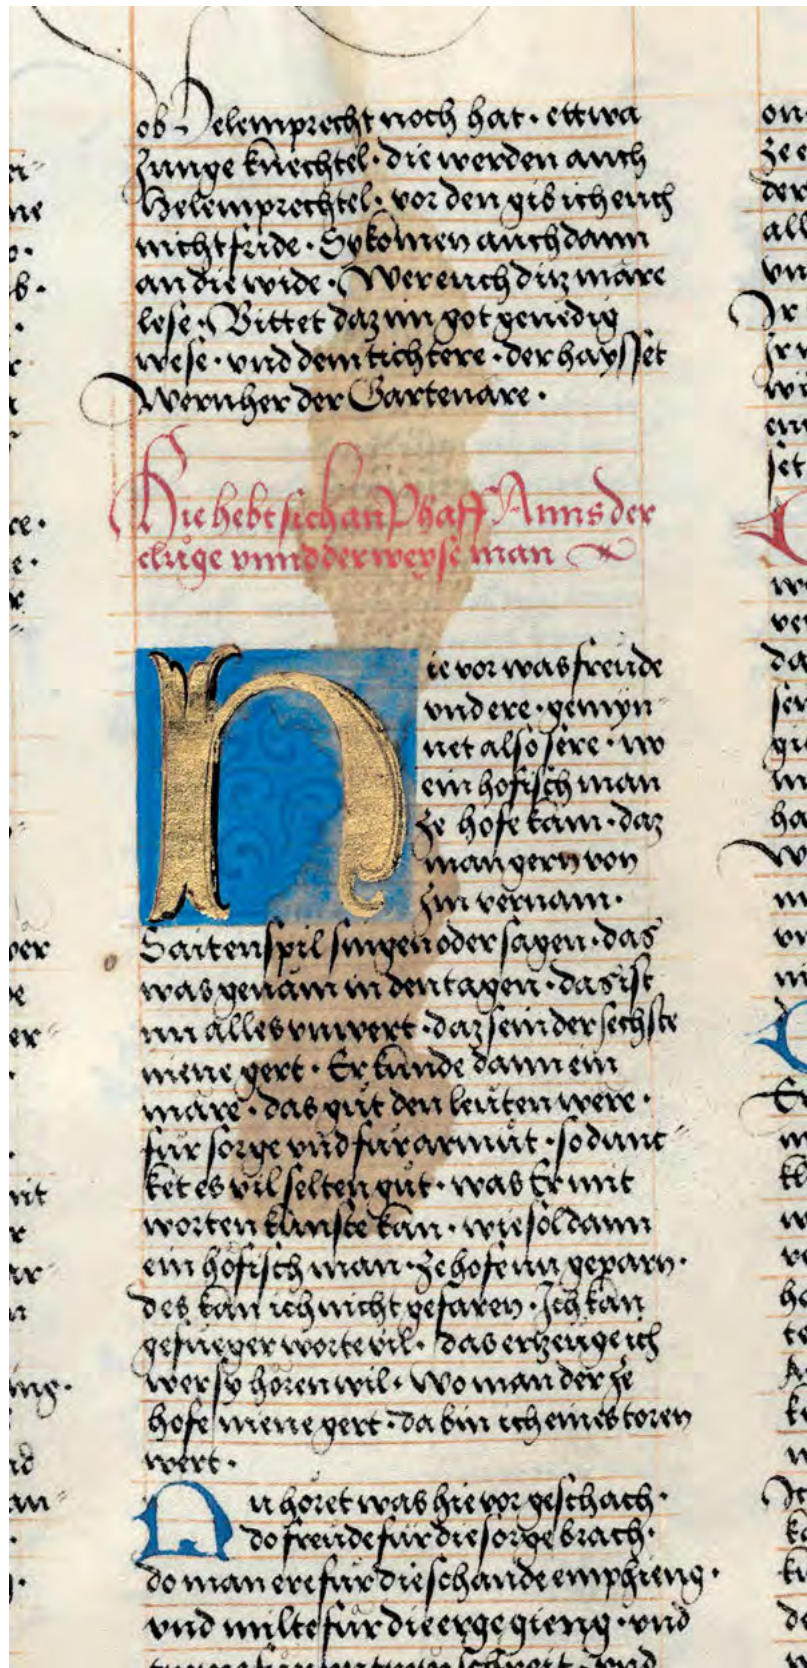 ob Helemprecht noch hat · ettwa
Junge knechtel · die werden auch
Helemprechtel · vor den gib ich euch
nicht fride · Sy komen auch dann
an die wide · Wer euch ditz märe
lese · Bittet daz im got genedig
wese · vnd dem tichtere · der haysset
Wernher der Gartenäre ·
Hie hebt sich an Phaff Amns der
clůge vnnd der weyse man
Hie vor was freüde
vnd ere · gemyn
net also sere · wo
ein höfisch man
ze hofe kam · daz
man gern von
Im vernam ·
Saitenspil singen oder sagen · das
was genäm in den tagen · das ist
nu alles vnwert · daz sein der sechste
niene gert · Er kunde dann ein
märe · das gůt den leüten were ·
für sorge vnd für armůt · so dunc
ket es vil selten gůt · was Er mit
worten kunste kan · wie sol dann
ein höfisch man · ze hofe nu geparn ·
des kan ich nicht gefaren · Ich kan
gefüeger worte vil · das ertzeuge ich
wer sy hören wil · wo man der ze
hofe niene gert · da bin ich eines toren
wert ·
Nu höret was hie vor geschach ·
do freüde für die sorge brach ·
do man ere für die schande emphieng ·
vnd milte für die erge gieng · vnd